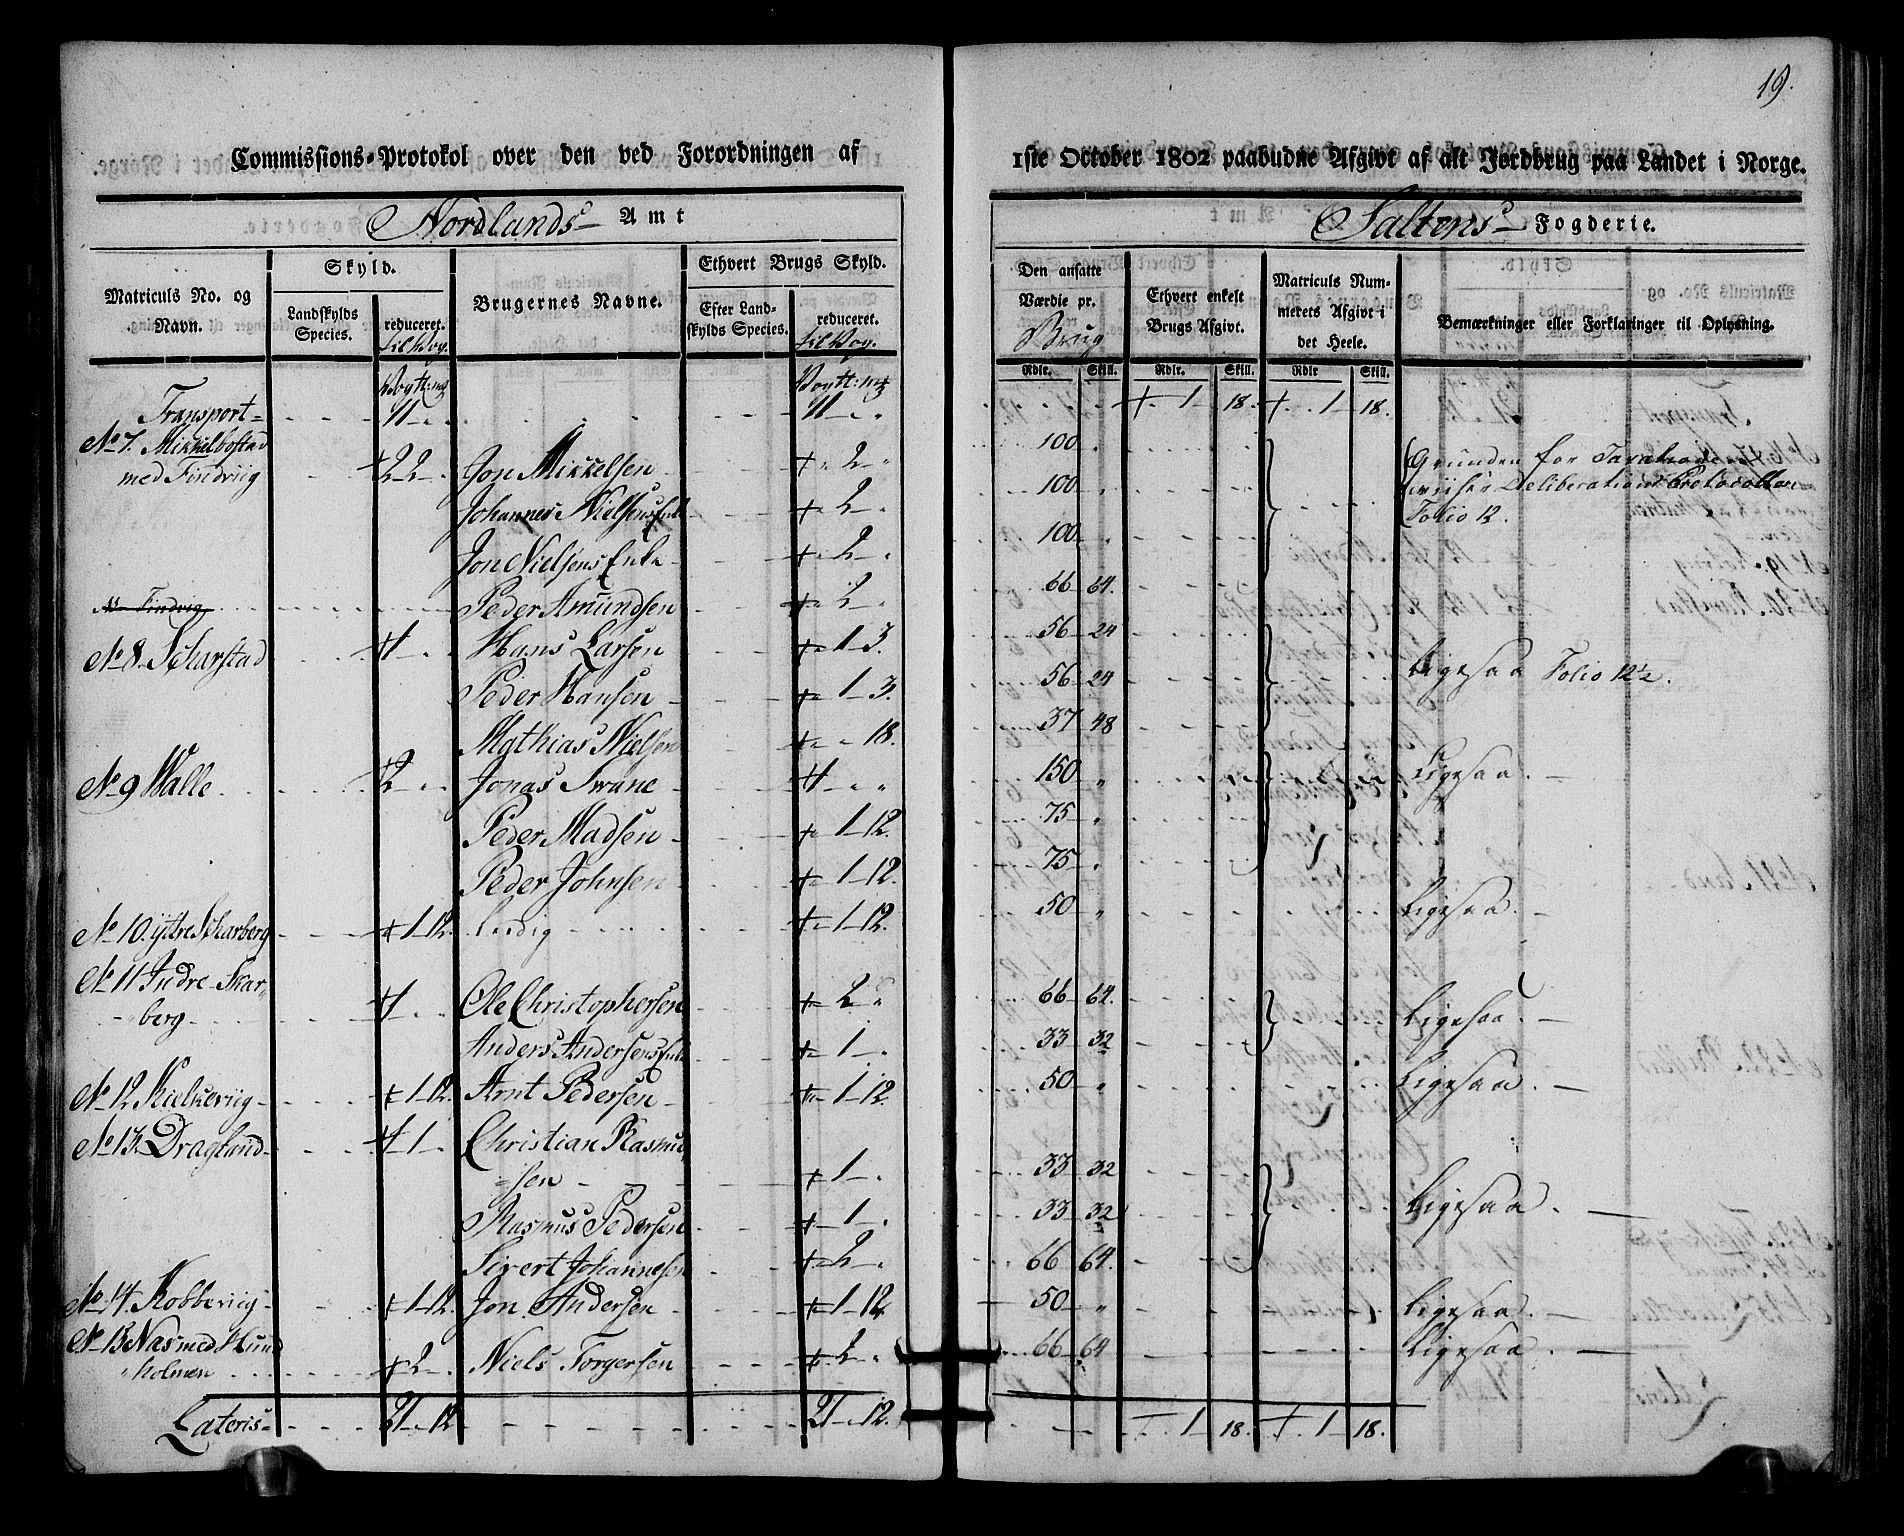 19.
Commissions-Protokol over den ved Forordningen af 1ste October 1802 paabudne Afgivt af alt Jordbrug paa Landet i Norge.
Nordlands Amt
Saltens Fogderie.
Matriculs No. og Navn.
Skyld.
Landskylds Species.
reduceret. til Vog.
Brugernes Navne.
Ethvert Brugs Skyld.
Efter Landskylds Species.
reduceret. til Vog.
Den ansatte Værdie pr. Brug
Rdlr. Skill.
Ethvert enkelt Brugs Afgivt.
Rdlr. Skill.
Matriculs Nummerets Afgivt i det Heele.
Rdlr Skill.
Bemærkninger eller Forklaringer til Oplysning.
Transport 1 18. 1 18.
No 7. Mikkelbostad
med Findviig 2 2 Jon Mikkelsen 2 " 100 " Grunden for
Johannes Nielsens Enke 2 " 100 " Deliberations Protocollen
Folio 12.
Jon Nielsens Enke 2 " 100 "
Findvig Peder Amundsen 2 " 66 64.
No 8. Scharstad Hans Larsen 1 3. 56 24
Peder Hansen 1 3. 56 24 Ligesaa Folio 12½.
Mathias Nielsen 18. 37 48
No 9 Walle 2 Jonas Swane " " 150 " Ligesaa.
Peder Madsen 1 12. 75 "
Peder Johnsen 1 12. 75 "
No 10. ytre Scharberg 1 12. Ledig 1 12. 50 " Ligesaa.
No 11 Indre Skar-
berg Ole Christophersen 2 " 66 64. Ligesaa.
Anders Andersens Enke 1 33 32
No 12 Kielkeviig 1 12. Arnt Pedersen 1 12. 50 " Ligesaa.
No 13. Dragland 1 Christian Rasmu-
sen 1 33 32
Rasmus Pedersen 1 33 32 Ligesaa.
Sivert Johannesen 2 66 64.
No 14. Kobberviig 1 12. Jon Andersen 1 12. 50 " Ligesaa.
No 15 Næs med Hund
holmen 2 Niels Torgersen 2 " 66 64 Ligesaa.
Lateris 21 12 21 12. 1 18. 1 18.